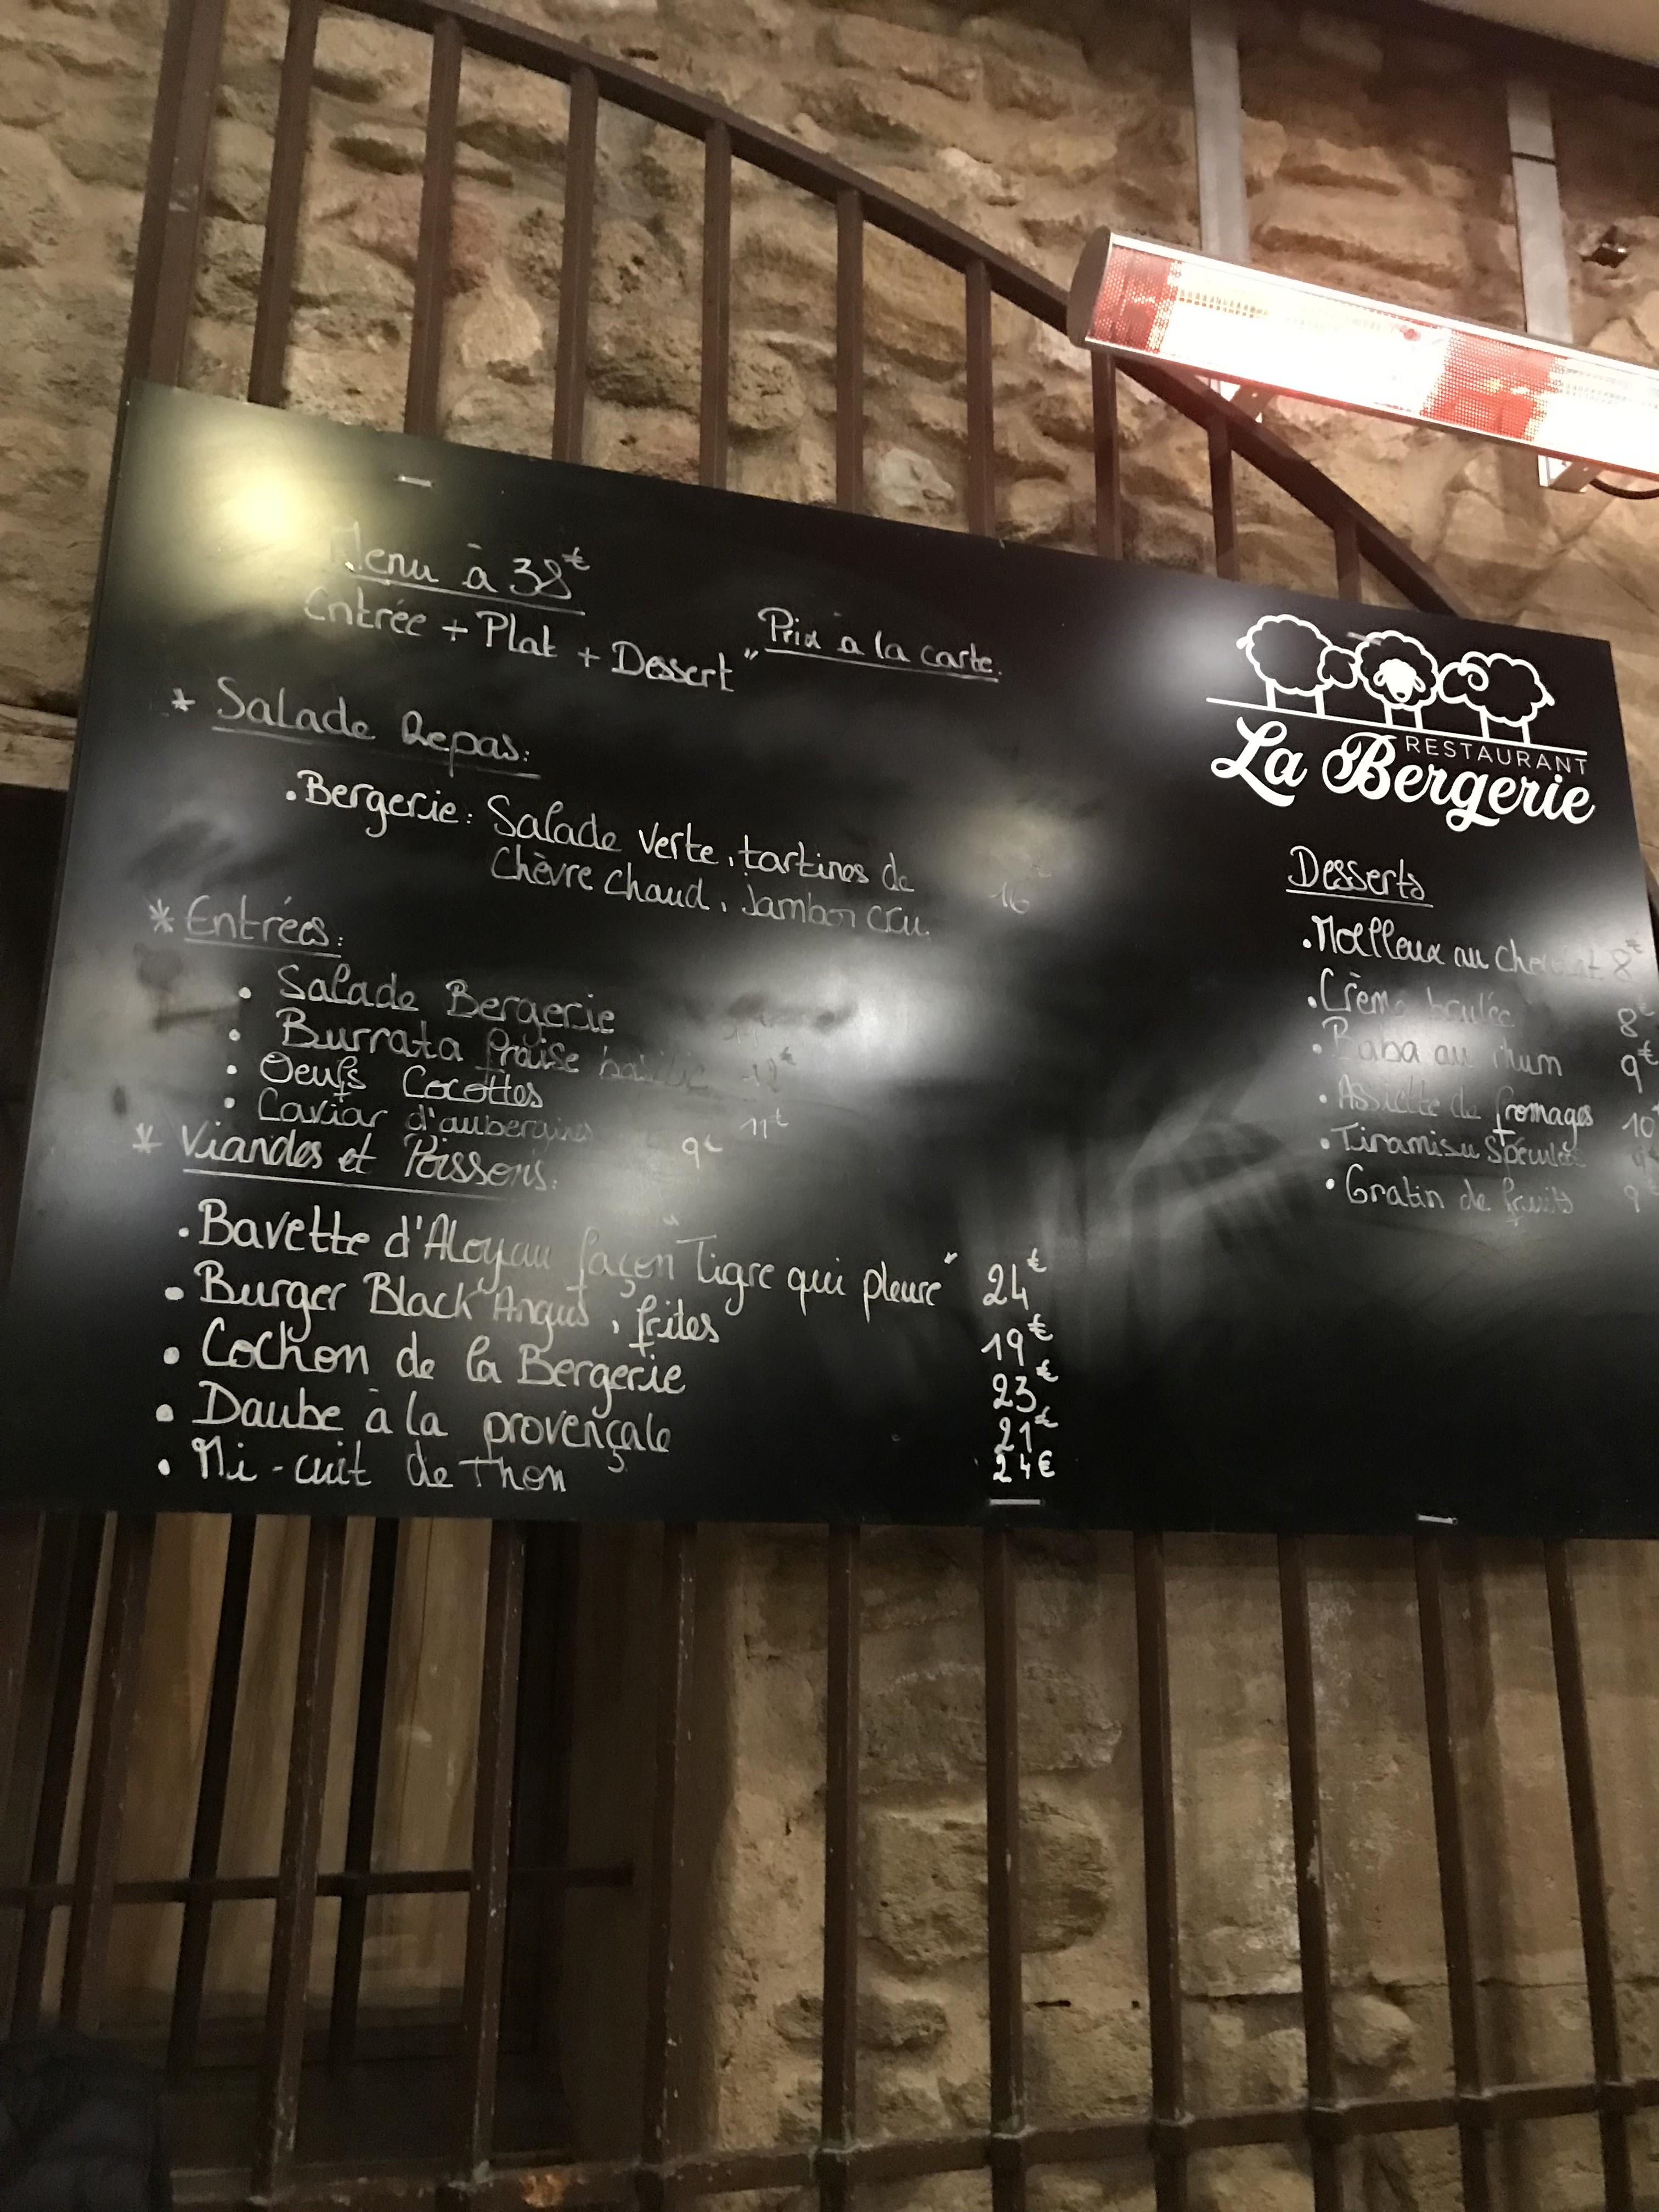 Menu à 38€
Entrée + Plat + Dessert
"Prix à la carte.
* Salade Repas:
• Bergerie: Salade verte, tartines de
Chèvre chaud, jambon cru. 16
* Entrées:
• Salade Bergerie
• Burrata fraise 12€
• Oeufs Cocottes 11€
• Caviar d'aubergines 9€
* Viandes et Poissons:
• Bavette d'Aloyau façon "Tigre qui pleure" 24€
• Burger Black Angus, frites 19€
• Cochon de la Bergerie 23€
• Daube à la provençale 21€
• Mi-cuit de Thon 24€
RESTAURANT
La Bergerie
Desserts
• Moelleux au 8€
• Crème brulée 8€
• Baba au rhum 9€
• Assiette de fromages 10
• Tiramisu Spéculos 9€
• Gratin de fruits 9